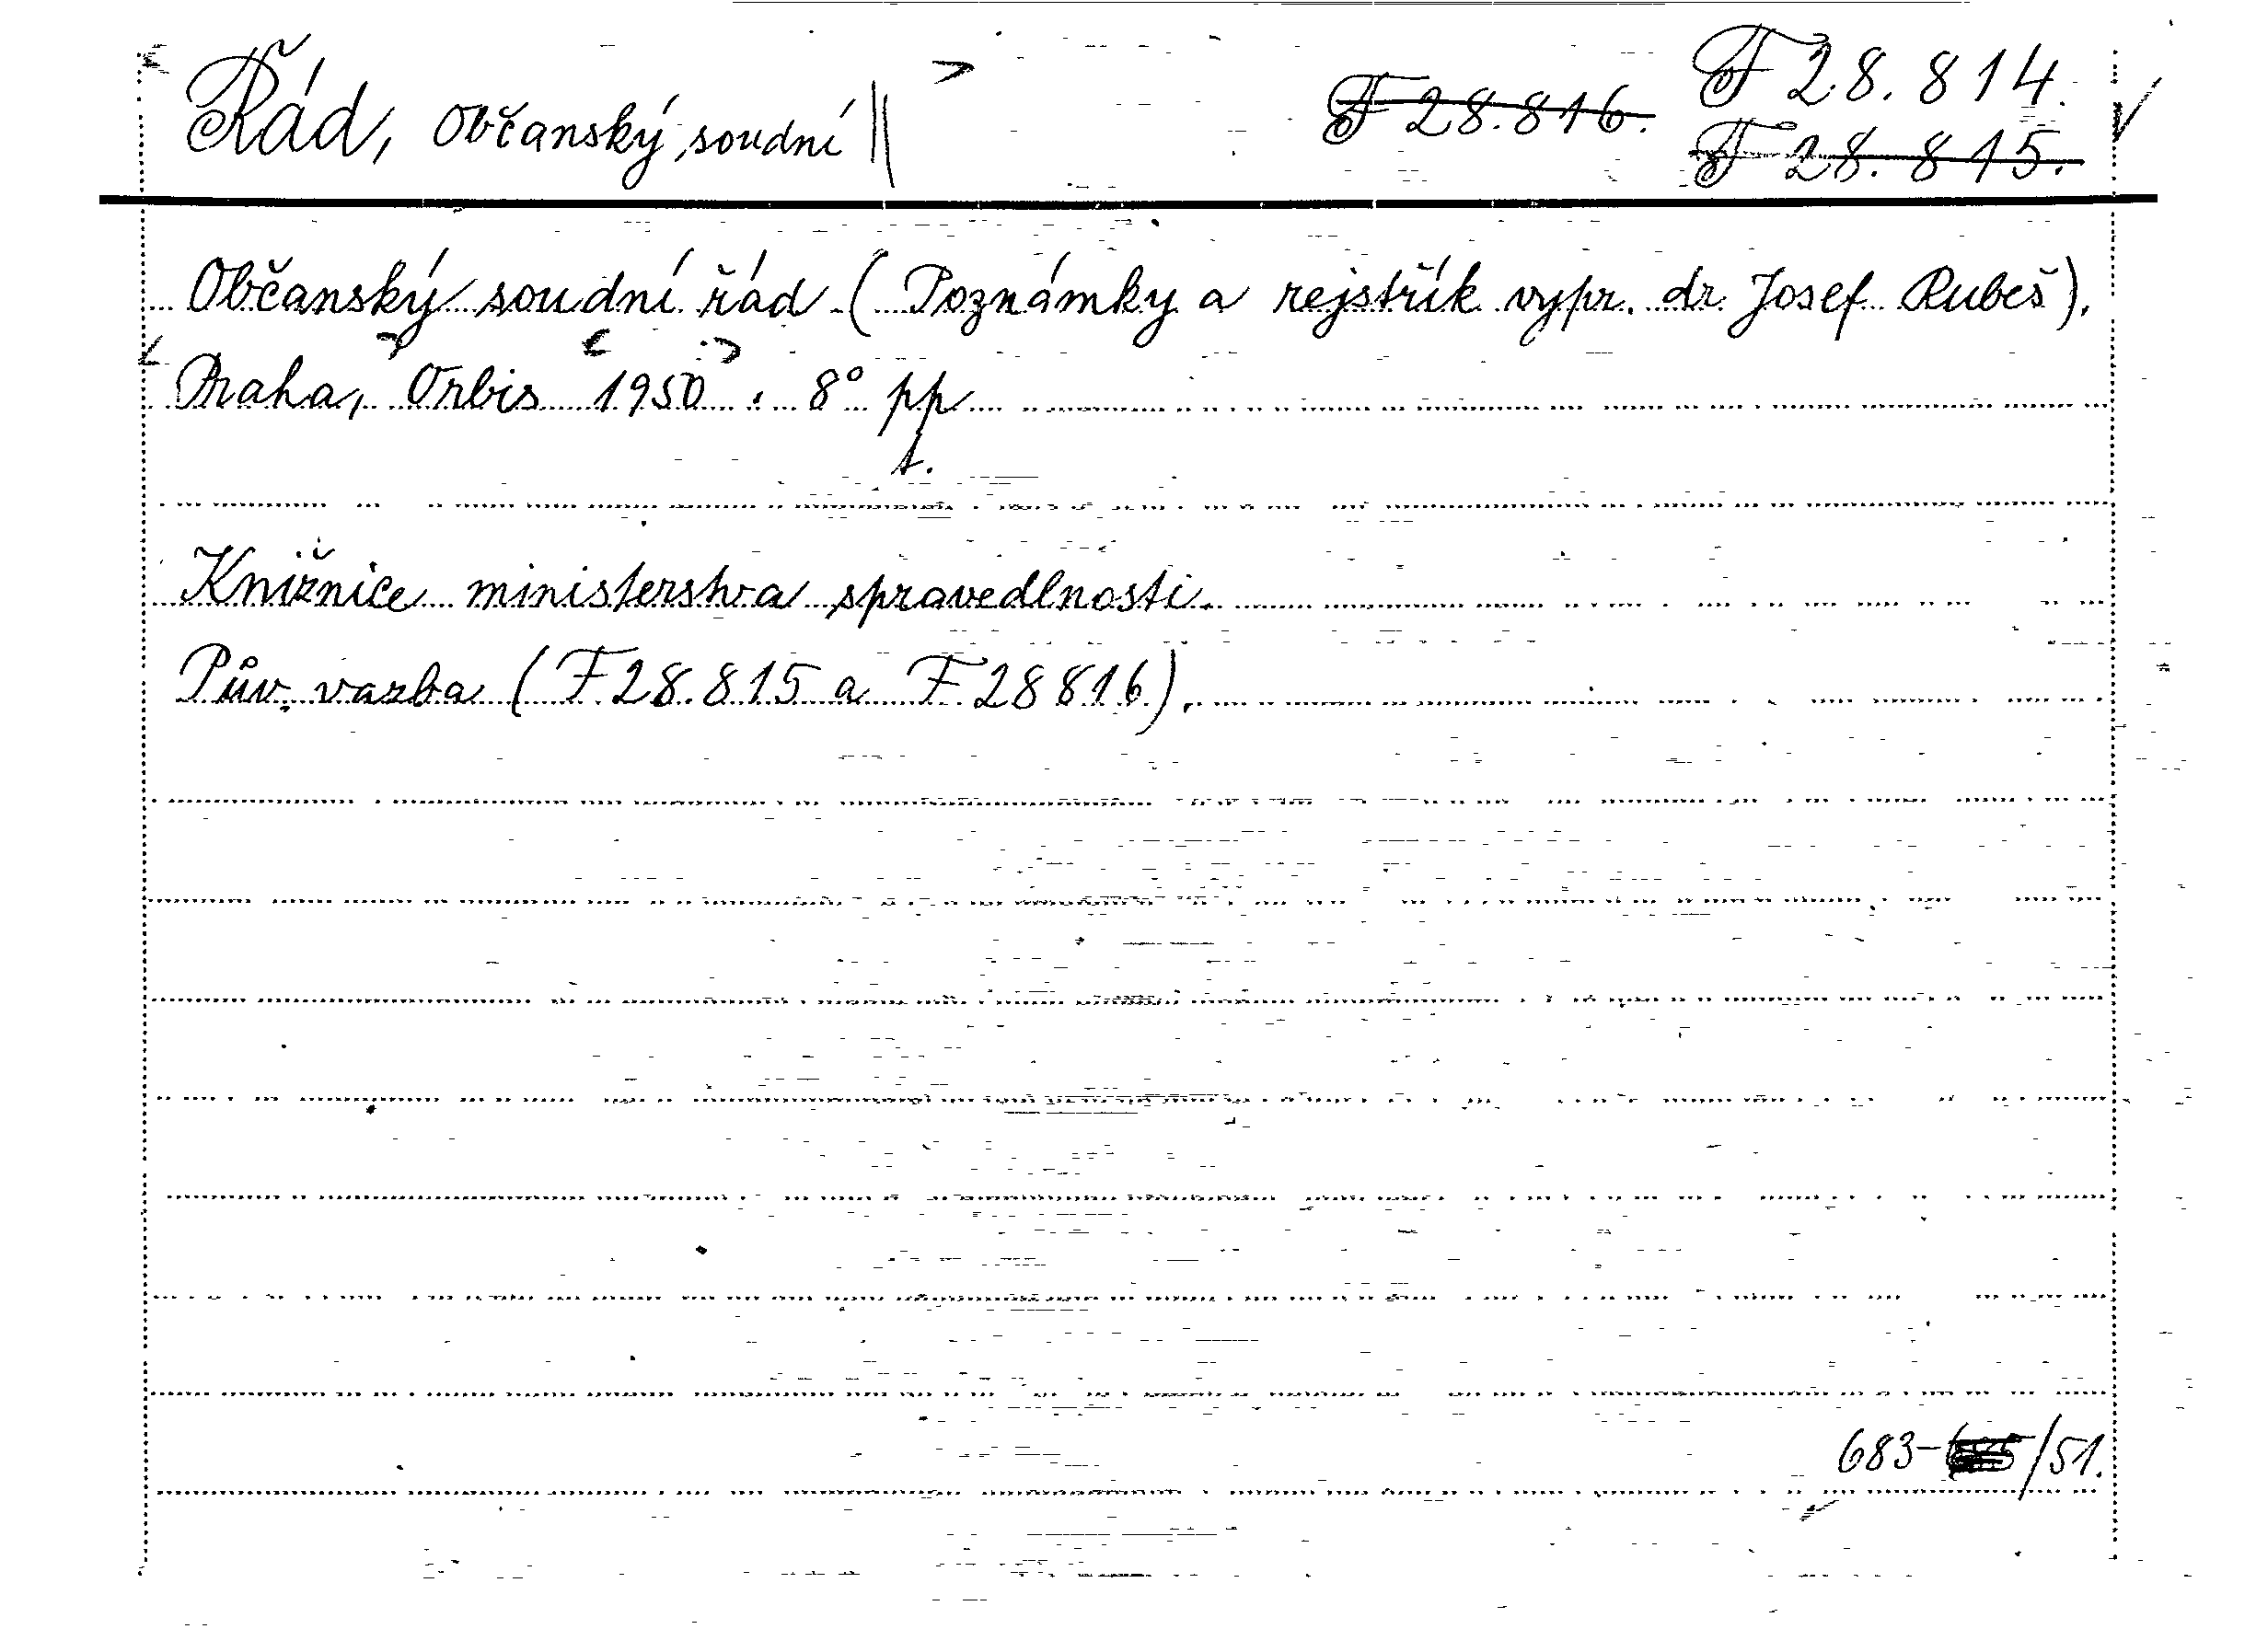 Řád, Občanský soudní || F 28.816. F 28.814.
F 28.815.
Občanský soudní řád (Poznámky a rejstřík vypr. dr. Josef Rubeš).
Praha, Orbis 1950. 8° pp
t.
Knižnice ministerstva spravedlnosti.
Pův. vazba (F 28.815 a F 28816).
683-/51.